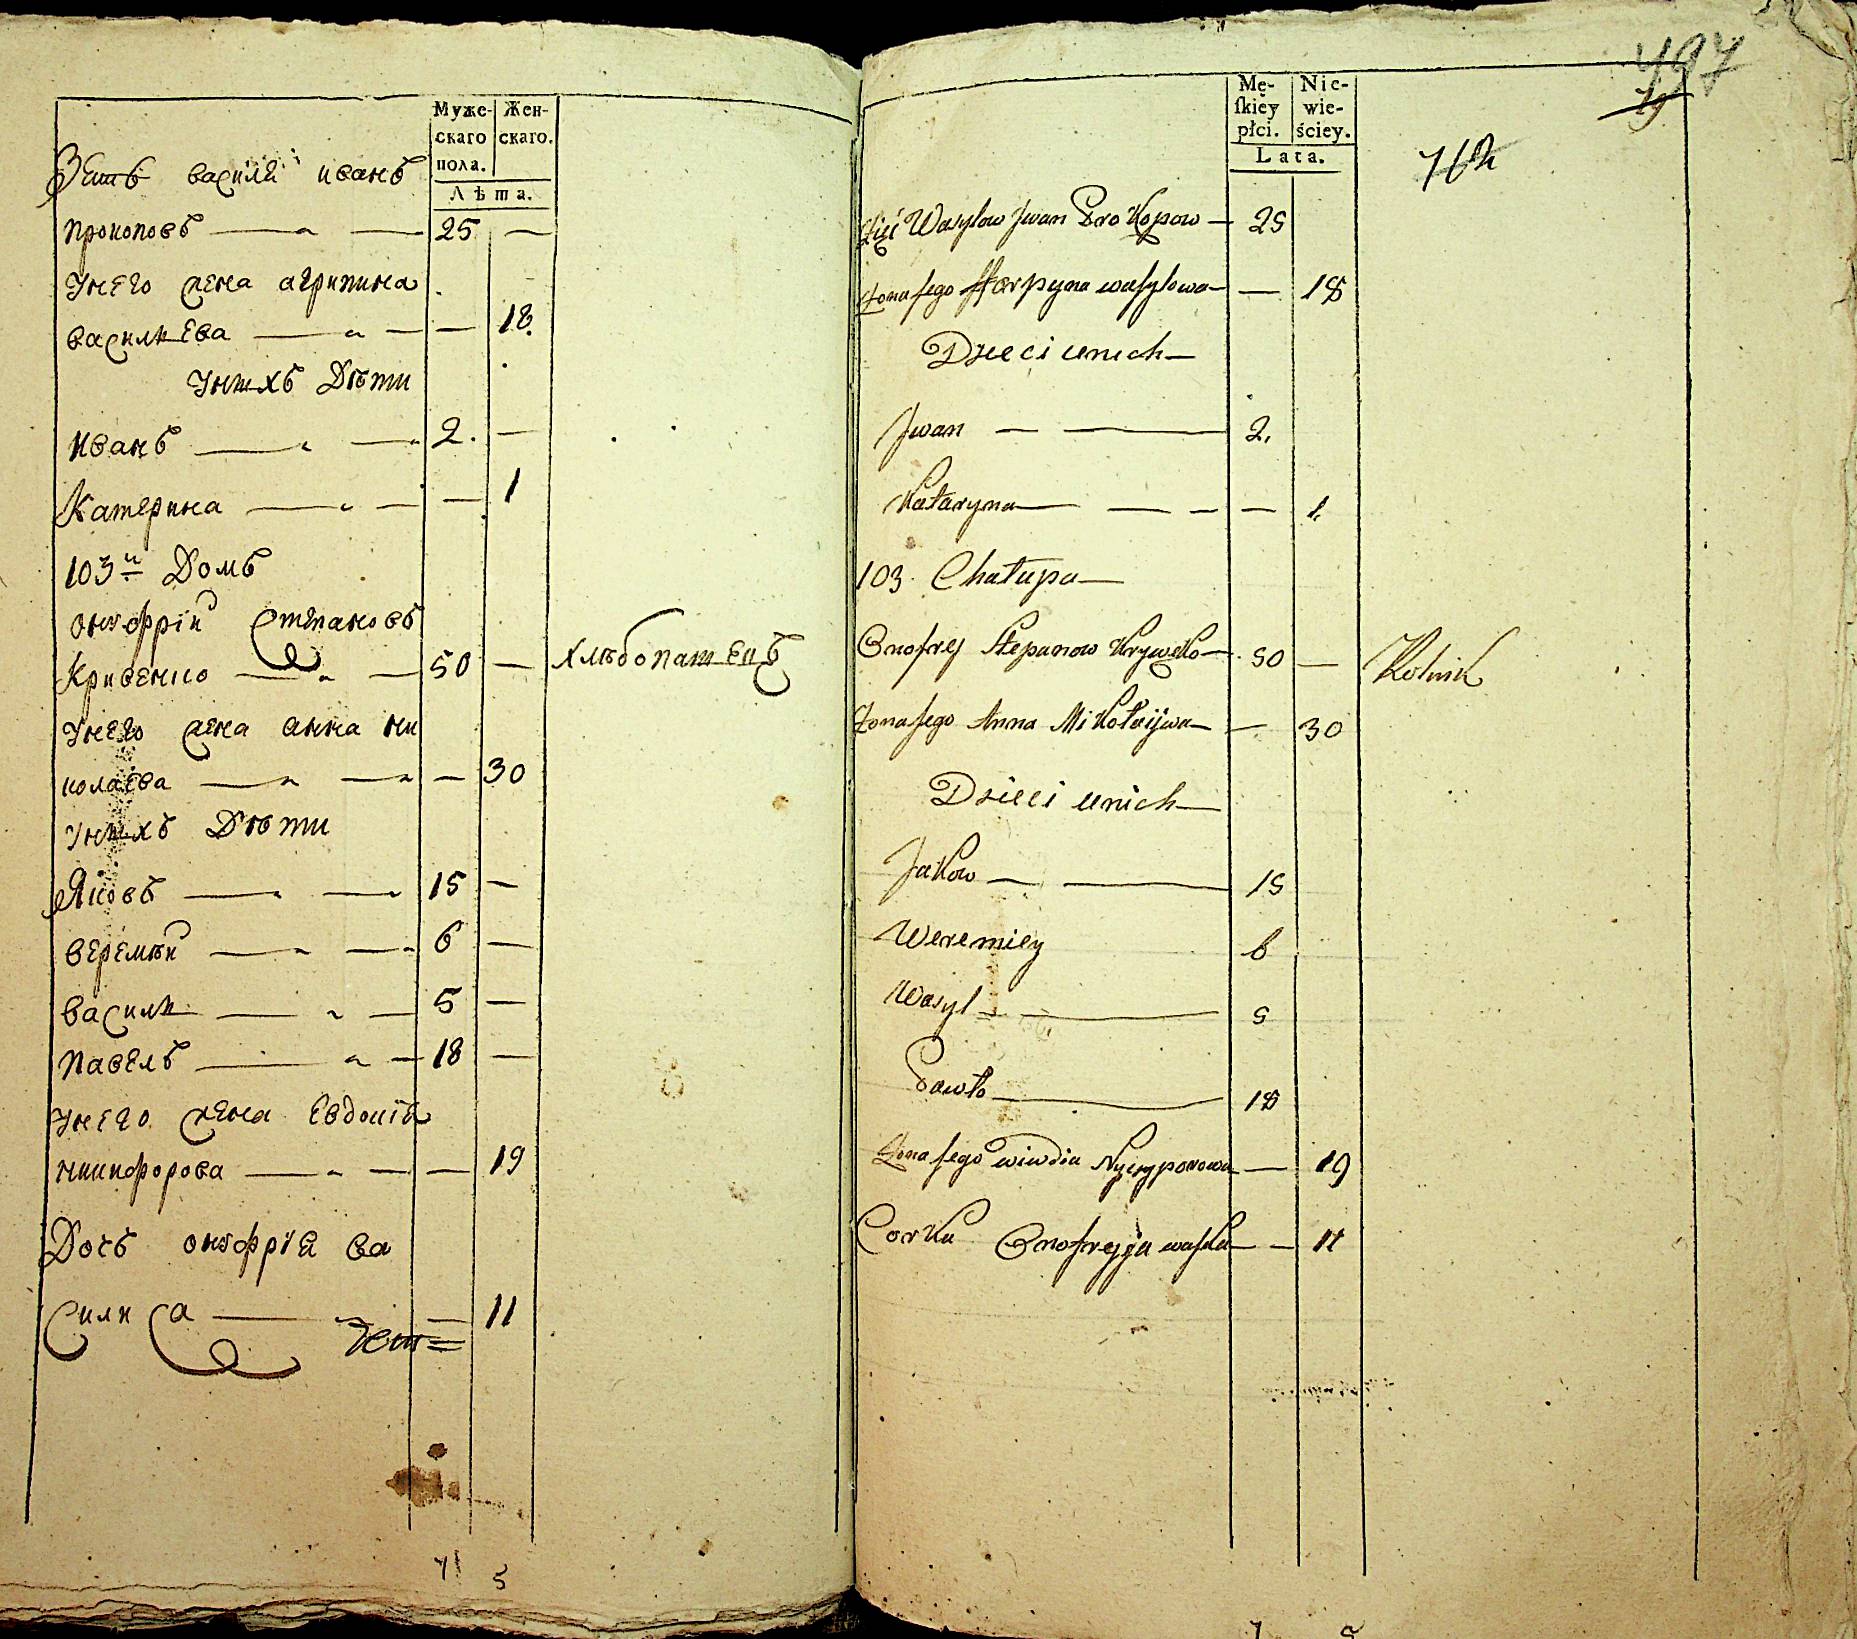 Муже-
скаго
пола.
Жен-
скаго.
Лѣта.
Зеть василя иванъ
прокоповъ — 25 —
Унего жена агрипина
василиева — — 18.
Унихъ Дѣти
иванъ — 2. —
Катерина — — 1
103й Домъ
онофрій Степановъ
Кривенко — 50 — хлѣбопашецъ
Унего жена анна ни
колаева — — 30
Унихъ Дѣти
Яковъ — 15 —
веремѣй — 6 —
васили — 5 —
павелъ — 18 —
Унего жена Евдокія
никифорова — — 19
Дочь онофрія ва
силиса — — 11
7 5
Mę-
skiey
płci.
Nie-
wie-
ściey.
Lata.
497
Zięć Wasylow Jwan Prokopow — 25
Zona jego Harpyna wasylowa — — 18
Dzieci unich —
Jwan — — 2.
Kataryna — — — — 1.
103. Chałupa —
Onofrey Stepanow Krywęko — 50 — Rolnik
Zona jego Anna Mikołaijwa — — 30
Dzieci unich —
Jakow — — 15
Weremiey 6
Wasyl — — 5
Pawło — 18
Zona jego wiwdia Nyczyporowa — 19
Corka Onofreyja waska — — 11